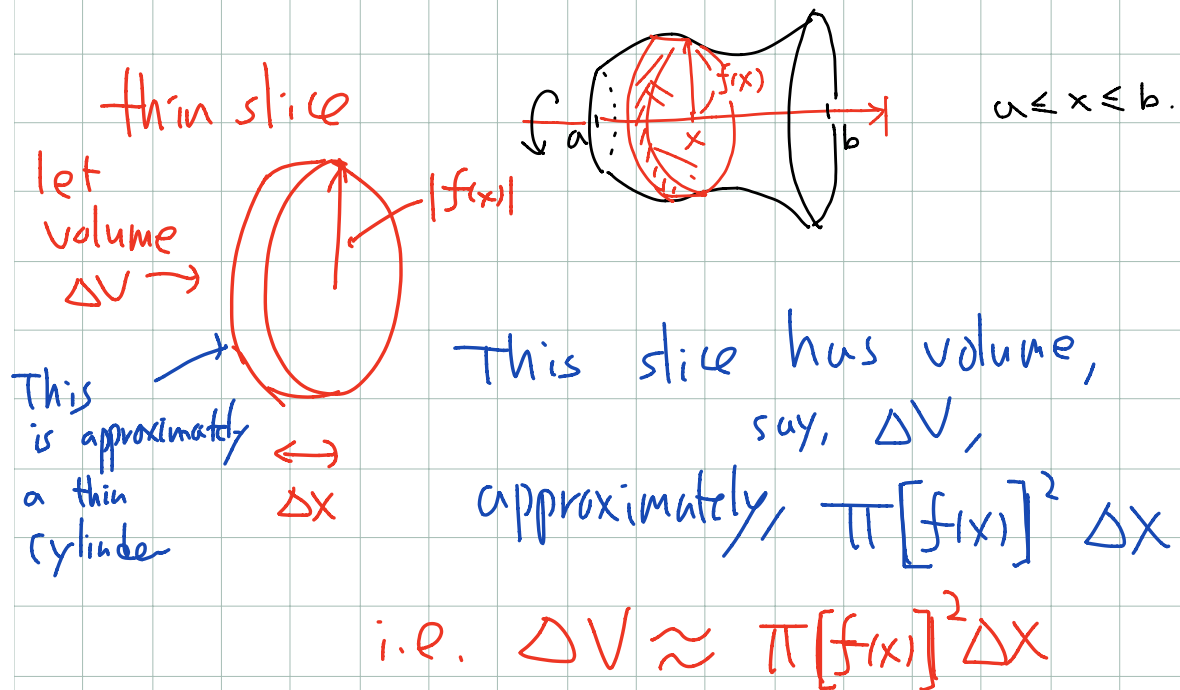 thin slice
let
volume
ΔV →
|f(x)|
f(x)
a
x
b
a ≤ x ≤ b.
This
is approximately
a thin
cylinder
ΔX
This slice has volume,
say, ΔV,
approximately, π[f(x)]² ΔX
i.e. ΔV ≈ π[f(x)]² ΔX